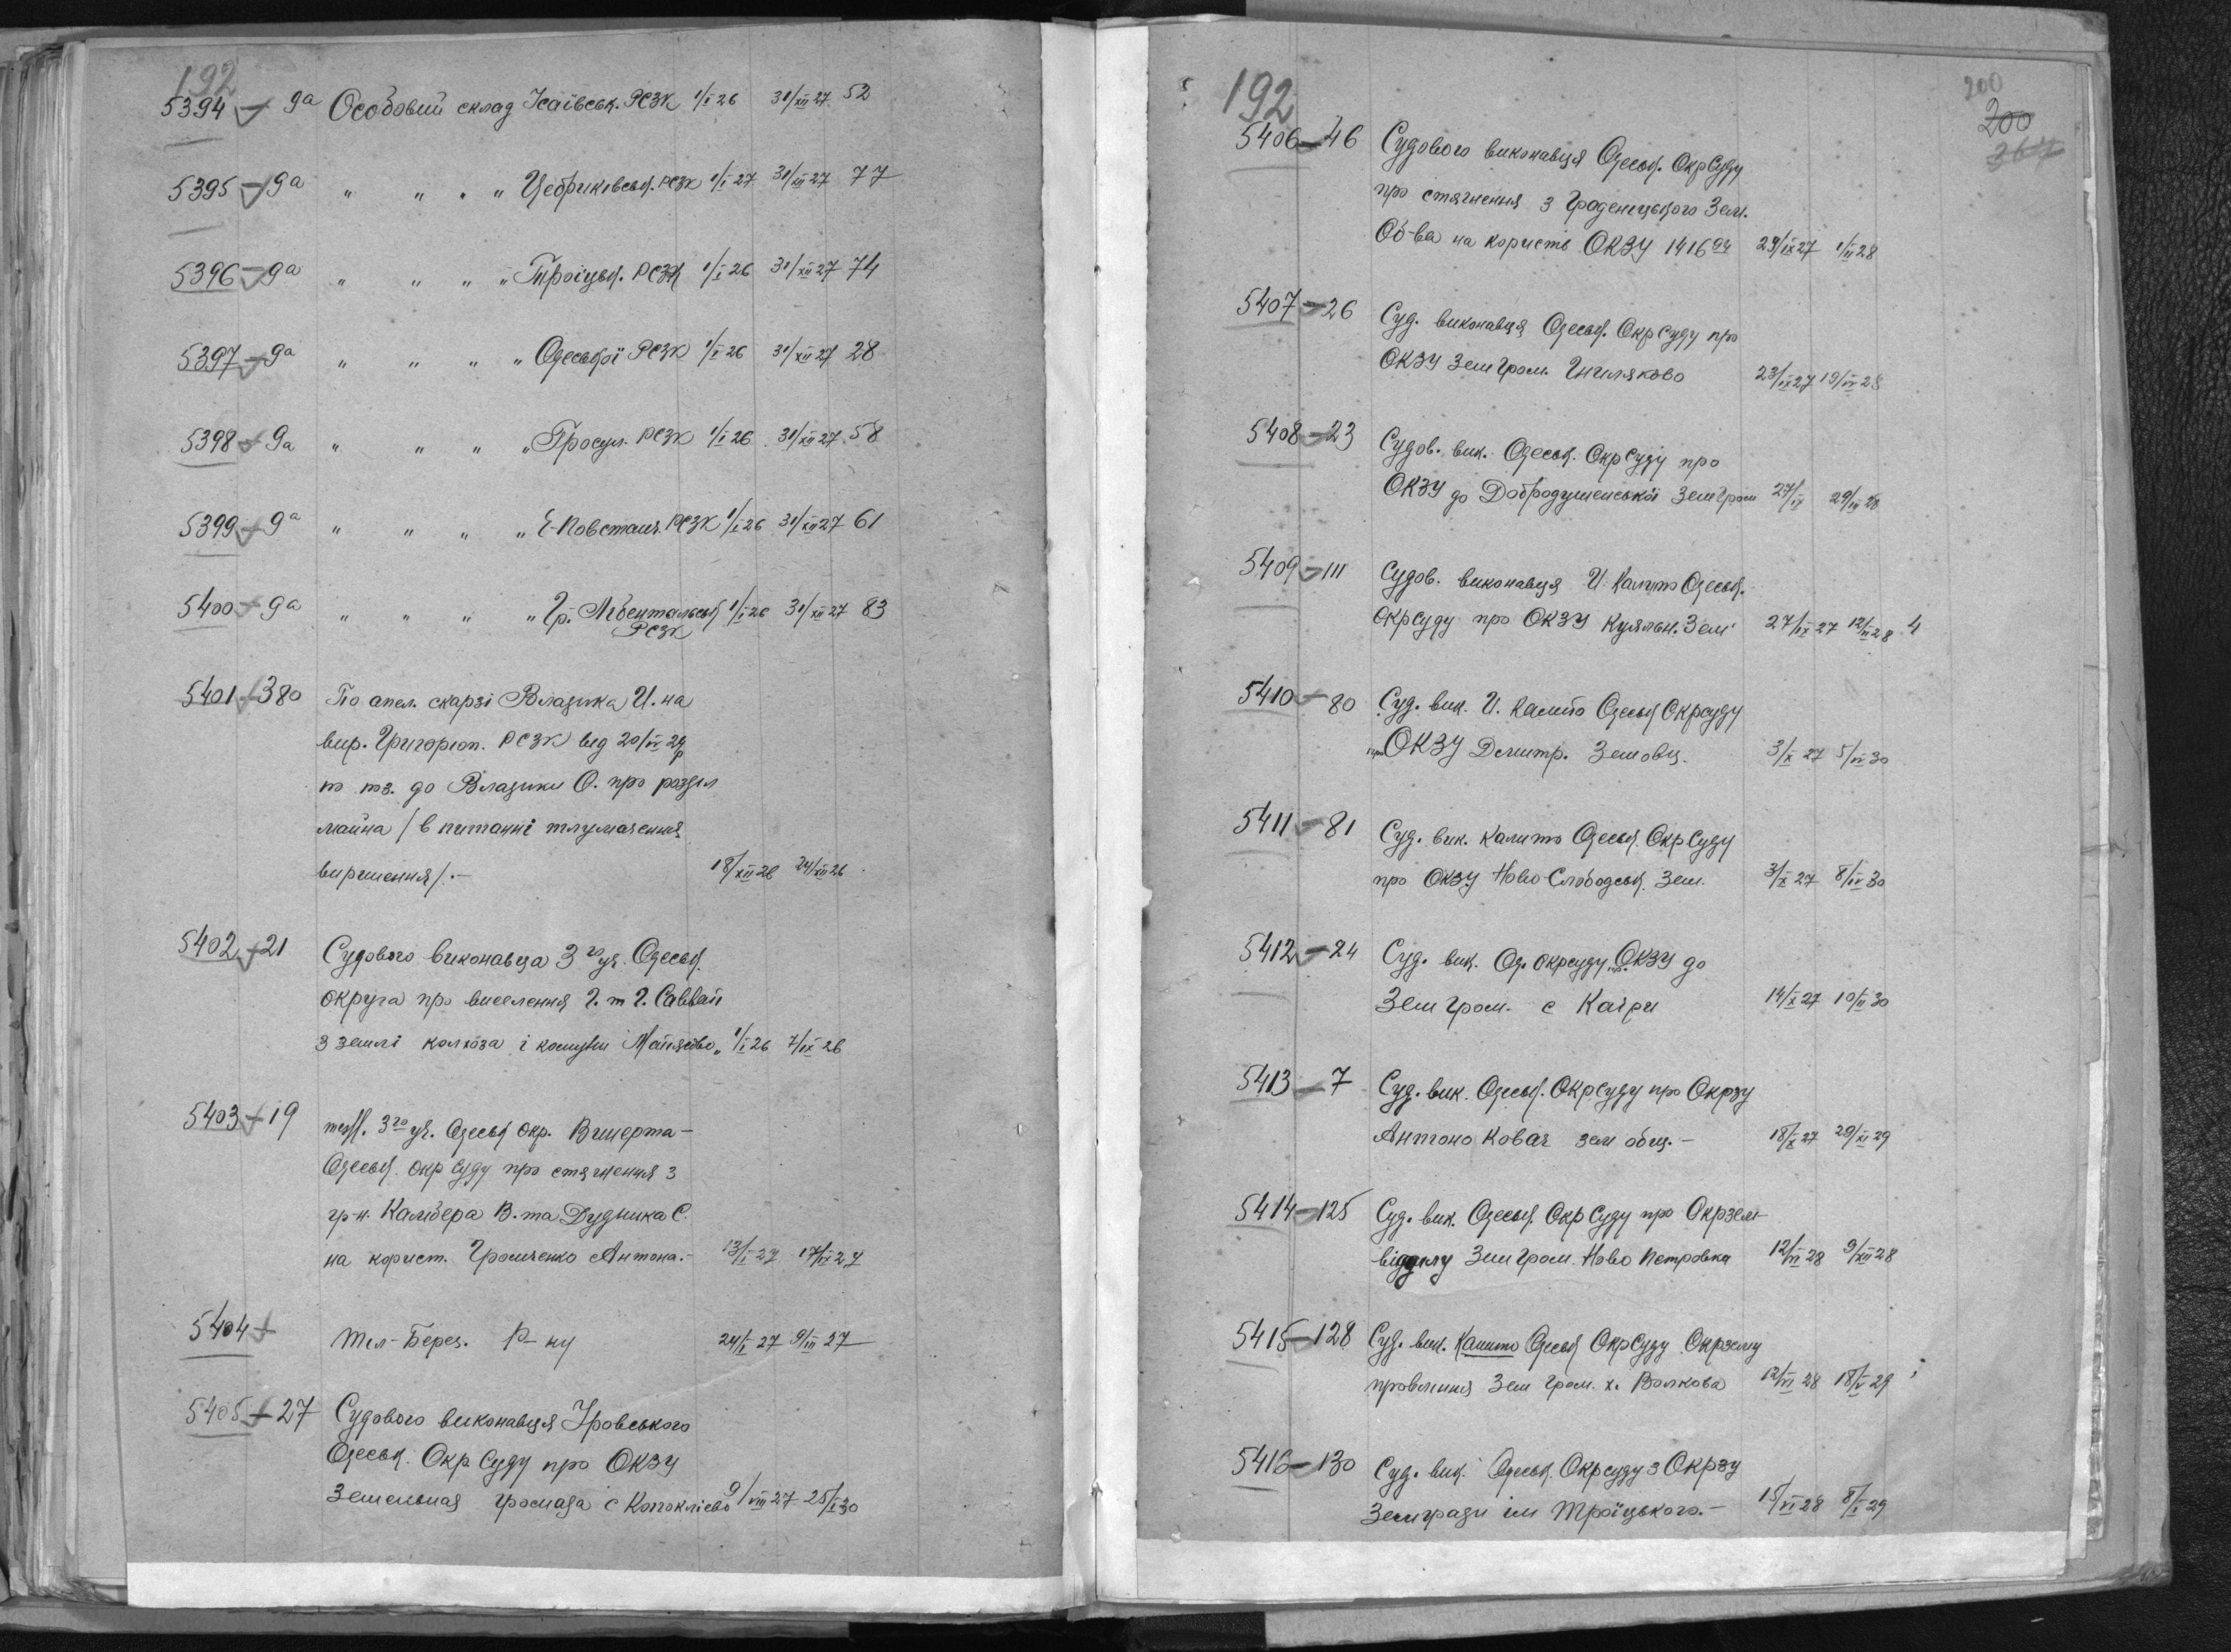 192
5394 9а Особовий склад Ісаївськ. РСЗК 1/I 26 31/XII 27 52
5395 9а " " " " Цебриківськ. РСЗК 1/I 27 31/XII 27 77
5396 9а " " " " Троїцьк. РСЗК 1/I 26 31/XII 27 74
5397 9а " " " " Одеської РСЗК 1/I 26 31/XII 27 28
5398 9а " " " " Гросул. РСЗК 1/I 26 31/XII 27 58
5399 9а " " " " Є-Повстанч. РСЗК 1/I 26 31/XII 27 61
5400 9а " " " " Гр. Лібентальськ 1/I 26 31/XII 27 83
РСЗК
5401 380 По апел. скарзі Владика И. на
вир. Григоріоп. РСЗК від 20/IV 24р
по тз. до Владики О. про розділ
майна / в питанні тлумачення
вирішення /.-
18/XII 26 24/XII 26
5402 21 Судового виконавца 3го уч. Одеськ.
округа про виселення Г. т Г. Саввай
з землі колхоза і комуни Маяково" 1/I 26 7/IX 26
5403 19 3го уч. Одеськ окр.
Одеськ. окр Суду про стягнення з
гр-н. Калібера В. та Дудника С.
на корист. Громченко Антона.- 13/I 27 17/IX 27
5404 Тел-Берез. Р-ну 24/I 27 9/III 27
5405 27 Судового виконавця
Одеськ. Окр Суду про ОКЗУ
Земельная громада с 9/VIII 27 25/I 30
192
200
200
5406 46 Судового виконавця Одеськ. ОкрСуду
про стягнення з Граденицького Зем.
Об-ва на користь ОКЗУ 1416 94 29/IX 27 1/II 28
5407 26 Суд. виконавця Одеськ. ОкрСуду про
ОКЗУ Земгром. Гниляково 23/IX 27 19/IV 28
5408 23 Судов. вик. Одеськ. ОкрСуду про
ОКЗУ до Добродушенської Земгром 27/IX 29/III 28
5409 111 Судов. виконавця И. Калито Одеськ.
окрсуду про ОКЗУ Куяльн. Зем 27/IX 27 12/III 28 4
5410 80 Суд. вик. И. Калито Одеськ Окрсуду
про ОКЗУ Дмитр. Земовщ. 3/X 27 5/IV 30
5411 81 Суд. вик. Калито Одеськ. ОкрСуду
про ОКЗУ Ново-Слободськ. Зем. 3/X 27 8/IV 30
5412 24 Суд. вик. Од. окрсуду про ОКЗУ до
Земгром. с Каїри 14/X 27 10/II 30
5413 7 Суд. вик. Одеськ. ОкрСуду про Окрзу
Антоно Ковач зем общ.- 18/X 27 29/XI 29
5414 125 Суд. вик. Одеськ. ОкрСуду про Окрзем-
відділу Земгром. Ново Петровка 12/VI 28 9/XII 28
5415 128 Суд. вик. Калито Одеськ ОкрСуду Окрзему
правління Зем гром. х. Волкова 12/VI 28 18/V 29
5416 130 Суд. вик. Одеськ. Окрсуду з Окрзу
Земгради ім Троїцького.- 15/VI 28 8/I 29